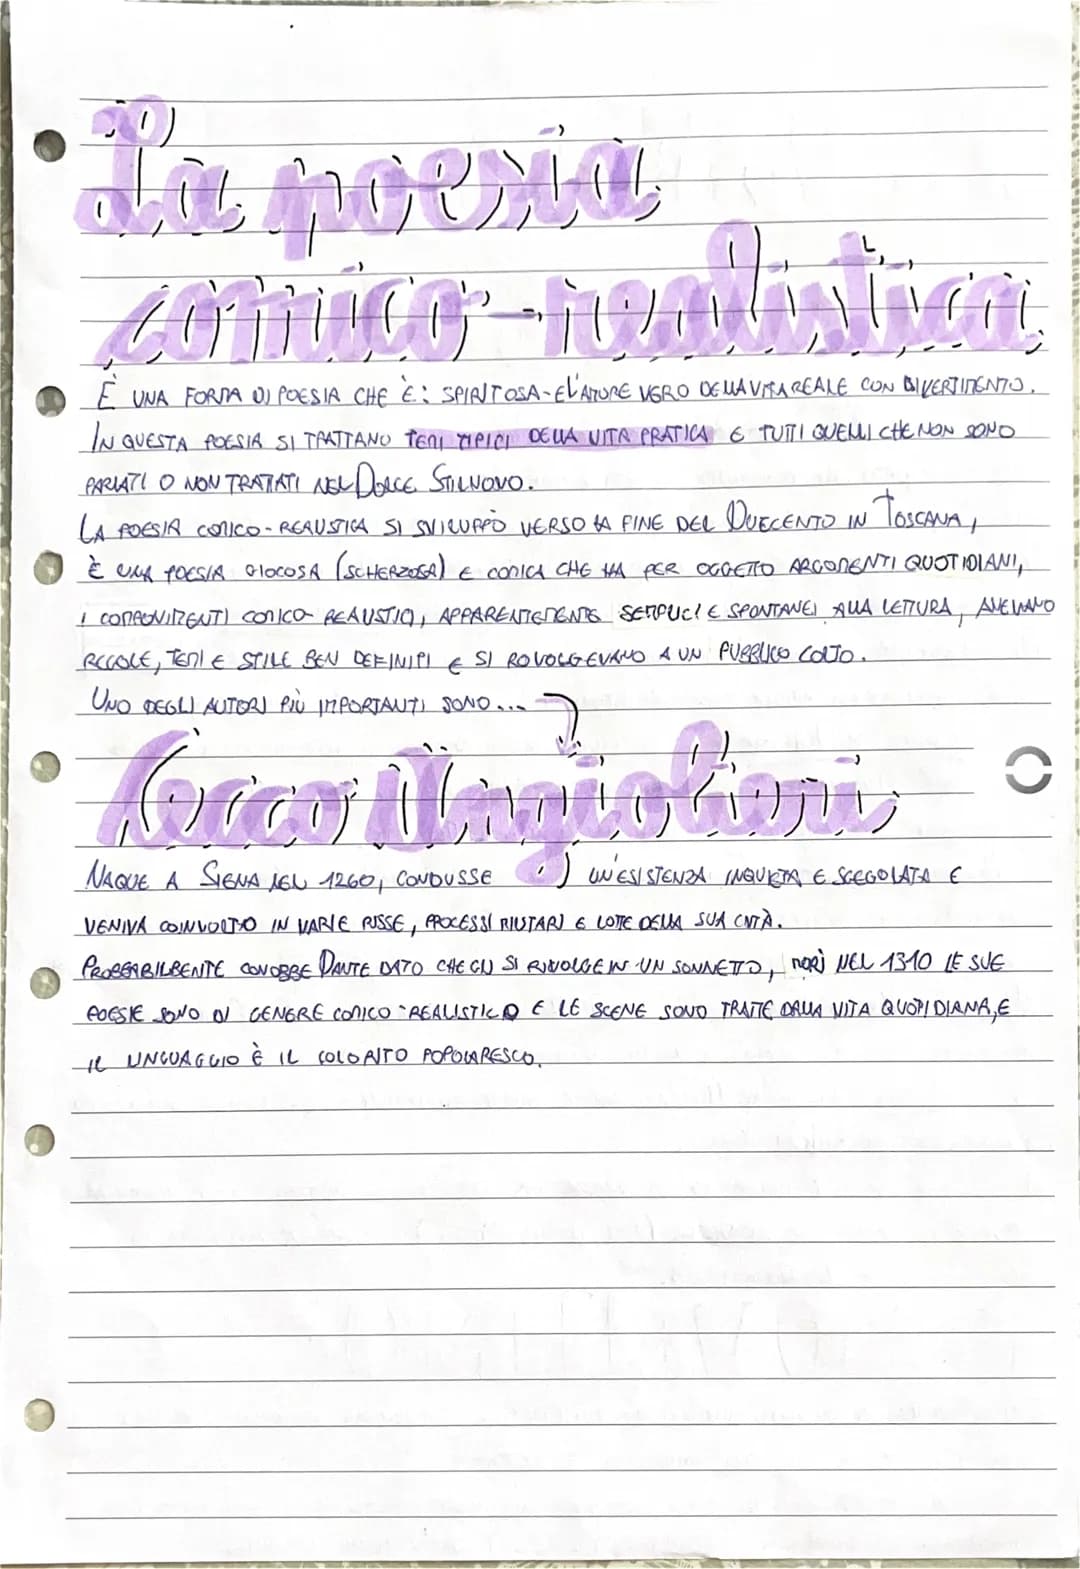 La poesia
comico-realistica
È UNA FORMA DI POESIA CHE È: SPIRITOSA-E L'AMORE VERO DELLA VITA REALE CON DIVERTIMENTO.
IN QUESTA POESIA SI TRATTANO TEMI TIPICI DELLA VITA PRATICA E TUTTI QUELLI CHE NON SONO
PARLATI O NON TRATTATI NEL DOLCE STILNOVO.
LA POESIA COMICO-REALISTICA SI SVILUPPÒ VERSO LA FINE DEL DUECENTO IN TOSCANA,
È UNA POESIA GIOCOSA (SCHERZOSA) E COMICA CHE HA PER OGGETTO ARGOMENTI QUOTIDIANI,
I COMPONIMENTI COMICO-REALISTICI, APPARENTEMENTE SEMPLICI E SPONTANEI ALLA LETTURA, AVEVANO
REGOLE, TEMI E STILE BEN DEFINITI E SI RIVOLGEVANO A UN PUBBLICO COLTO.
UNO DEGLI AUTORI PIÙ IMPORTANTI SONO...
Cecco Angiolieri
NAQUE A SIENA NEL 1260, CONDUSSE UN'ESISTENZA INQUIETA E SCEGOLATA E
VENIVA COINVOLTO IN VARIE RISSE, PROCESSI MILITARI E LOTTE DELLA SUA CITTÀ.
PROBABILMENTE CONOBBE DANTE DATO CHE GLI SI RIVOLGE IN UN SONNETTO, MORÌ NEL 1310 LE SUE
POESIE SONO DI GENERE COMICO-REALISTICO E LE SCENE SONO TRATTE DALLA VITA QUOTIDIANA, E
IL LINGUAGGIO È IL COLORITO POPOLARESCO.